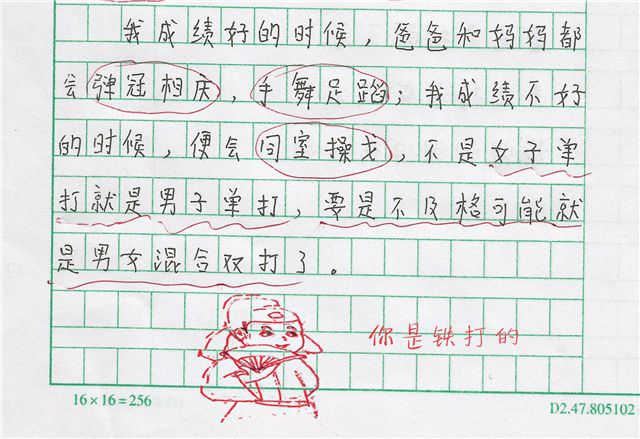 我成绩好的时候，爸爸和妈妈都
会弹冠相庆，手舞足蹈；我成绩不好
的时候，便会同室操戈，不是女子单
打就是男子单打，要是不及格可能就
是男女混合双打了。
你是铁打的
16×16=256
D2.47.805102